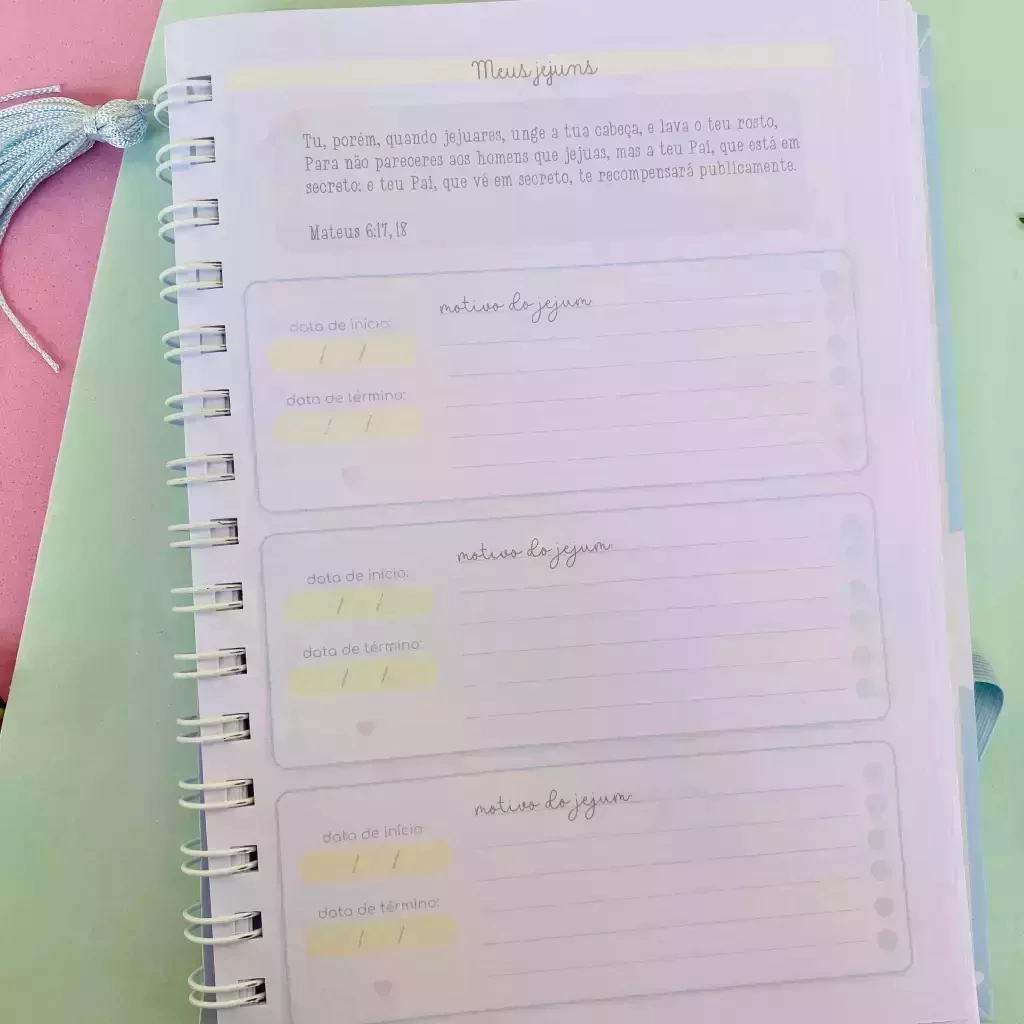 Meus jejuns
Tu, porém, quando jejuares, unge a tua cabeça, e lava o teu rosto,
Para não pareceres aos homens que jejuas, mas a teu Pai, que está em
secreto; e teu Pai, que vê em secreto, te recompensará publicamente.
Mateus 6:17, 18
motivo do jejum
data de início:
/ /
data de término:
/ /
motivo do jejum
data de início:
/ /
data de término:
/ /
motivo do jejum
data de início:
/ /
data de término:
/ /